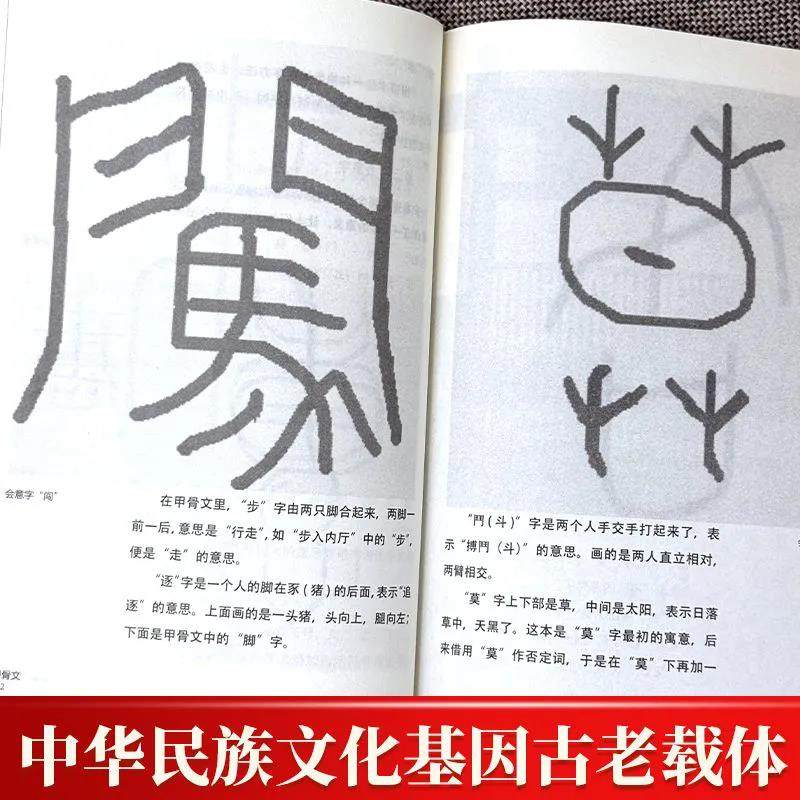 会意字“闯”
在甲骨文里，“步”字由两只脚合起来，两脚一
前一后，意思是“行走”，如“步入内厅”中的“步”，
便是“走”的意思。
“逐”字是一个人的脚在豕（猪）的后面，表示“追
逐”的意思。上面画的是一头猪，头向上，腿向左；
下面是甲骨文中的“脚”字。
甲骨文
2
“鬥（斗）”字是两个人手交手打起来了，表
示“搏鬥（斗）”的意思。画的是两人直立相对，
两臂相交。
“莫”字上下部是草，中间是太阳，表示日落
草中，天黑了。这本是“莫”字最初的寓意，后
来借用“莫”作否定词，于是在“莫”下再加一
中华民族文化基因古老载体